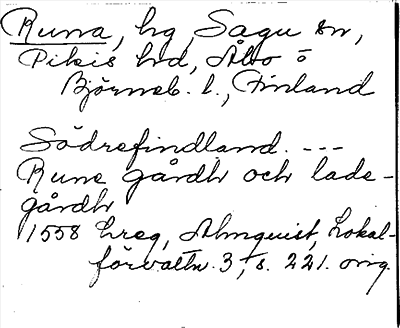 Runa, hg, Sagu sn,
Pikis hd, Åbo o
Björneb. l., Finland
Södrefindland. ---
Rune gårdh och lade-
gårdh
1558 Lreg, Almquist, Lokal-
förvaltn. 3, s. 221. orig.